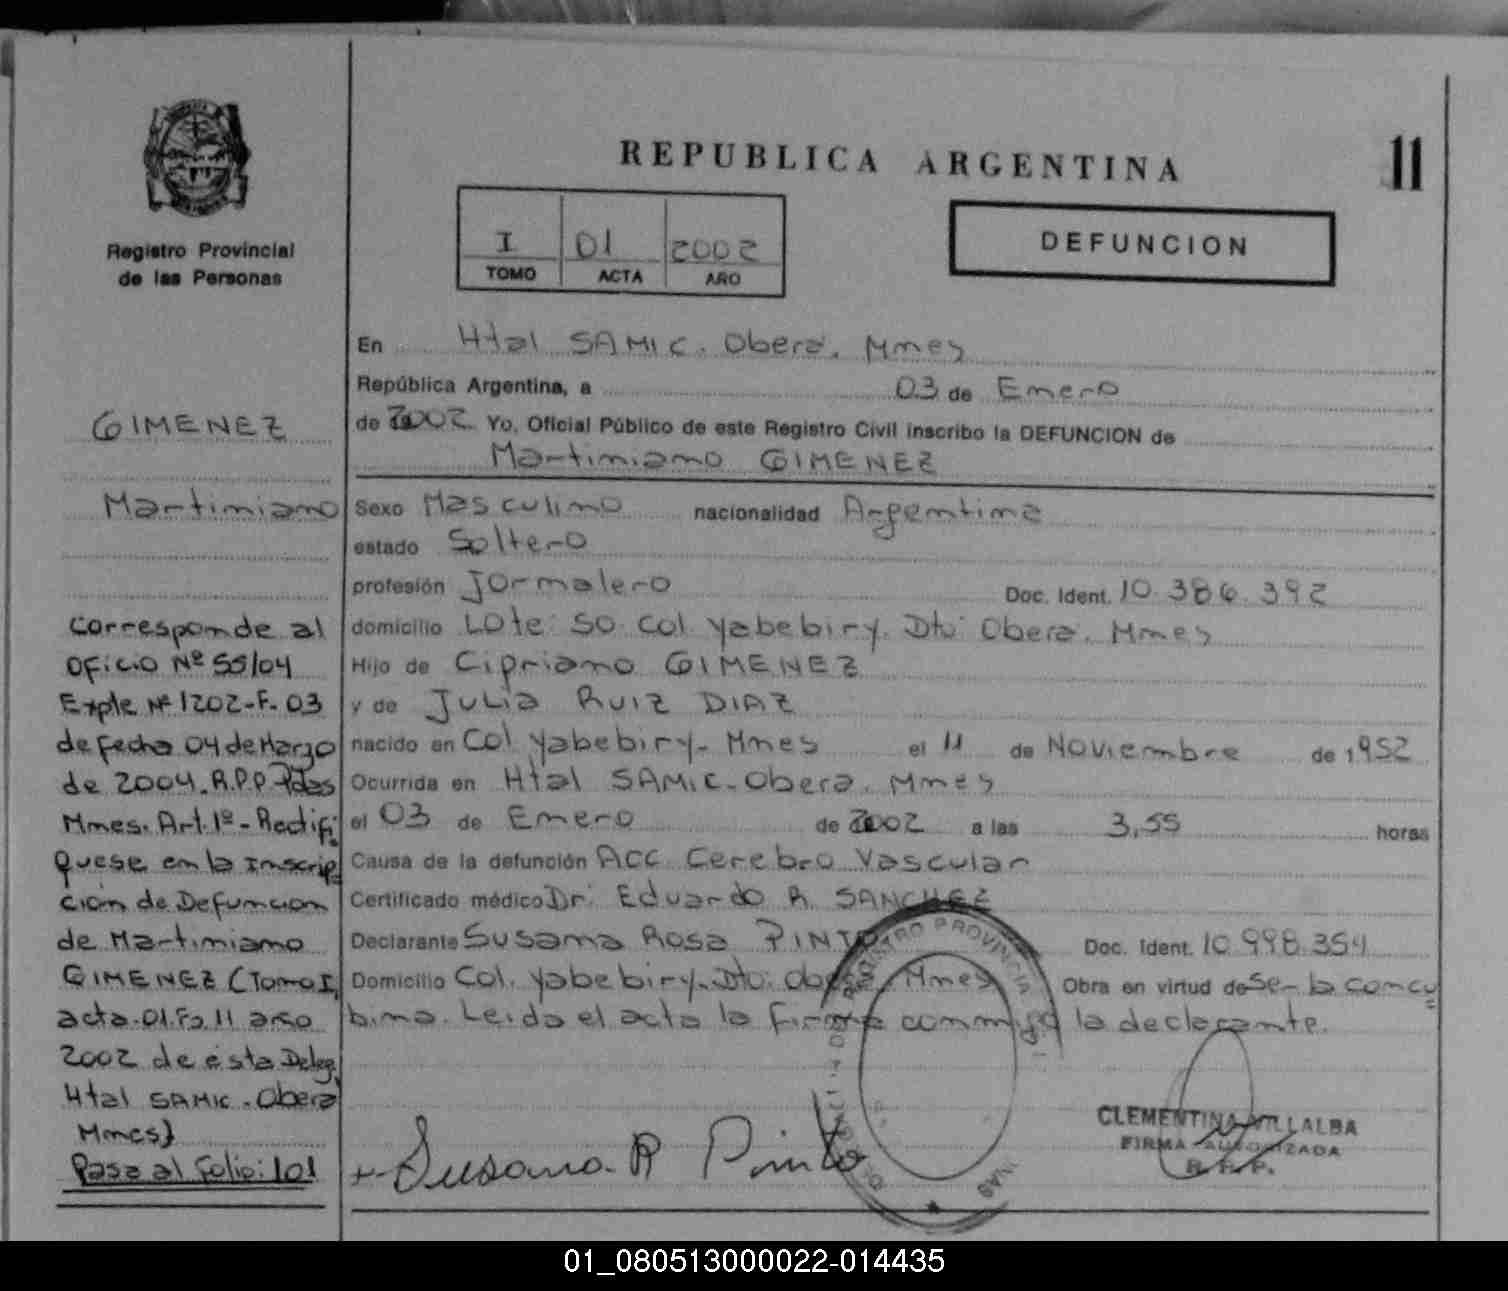 REPUBLICA ARGENTINA
11
I 01 2002
TOMO ACTA AÑO
DEFUNCION
Registro Provincial
de las Personas
GIMENEZ
Martimiano
Corresponde al
Oficio Nº 55/04
Expte Nº 1202-F-03
de fecha 04 de Marzo
de 2004. R.P.P. Pdas
Mnes. Art. 1º - Rectifi
quese en la Inscrip
ción de Defuncion
de Martimiano
GIMENEZ (Tomo I,
acta-01-Fo 11 año
2002 de esta Deleg.
Htal SAMIC. Obera
Mnes)
Pasa al folio: 101
En Htal SAMIC. Obera. Mnes
República Argentina, a 03 de Enero
de 2002 Yo, Oficial Público de este Registro Civil inscribo la DEFUNCION de
Martimiano GIMENEZ
Sexo Masculino nacionalidad Argentina
estado Soltero
profesión Jornalero Doc. Ident. 10.386.392
domicilio Lote: 50 Col Yabebiry. Dto: Obera. Mnes
Hijo de Cipriano GIMENEZ
y de Julia RUIZ DIAZ
nacido en Col Yabebiry- Mnes el 11 de Noviembre de 1952
Ocurrida en Htal SAMIC-Obera. Mnes
el 03 de Enero de 2002 a las 3,55 horas
Causa de la defunción Acc. Cerebro Vascular
Certificado médico Dr: Eduardo R. SANCHEZ
Declarante Susana Rosa PINTO Doc. Ident. 10.998.354
Domicilio Col. Yabebiry-Dto: Obera Mnes Obra en virtud de Ser la concu
bina. Leida el acta la firma conmigo la declarante.
Susana R Pinto
CLEMENTINA VILLALBA
FIRMA AUTORIZADA
R. P. P.
01_080513000022-014435